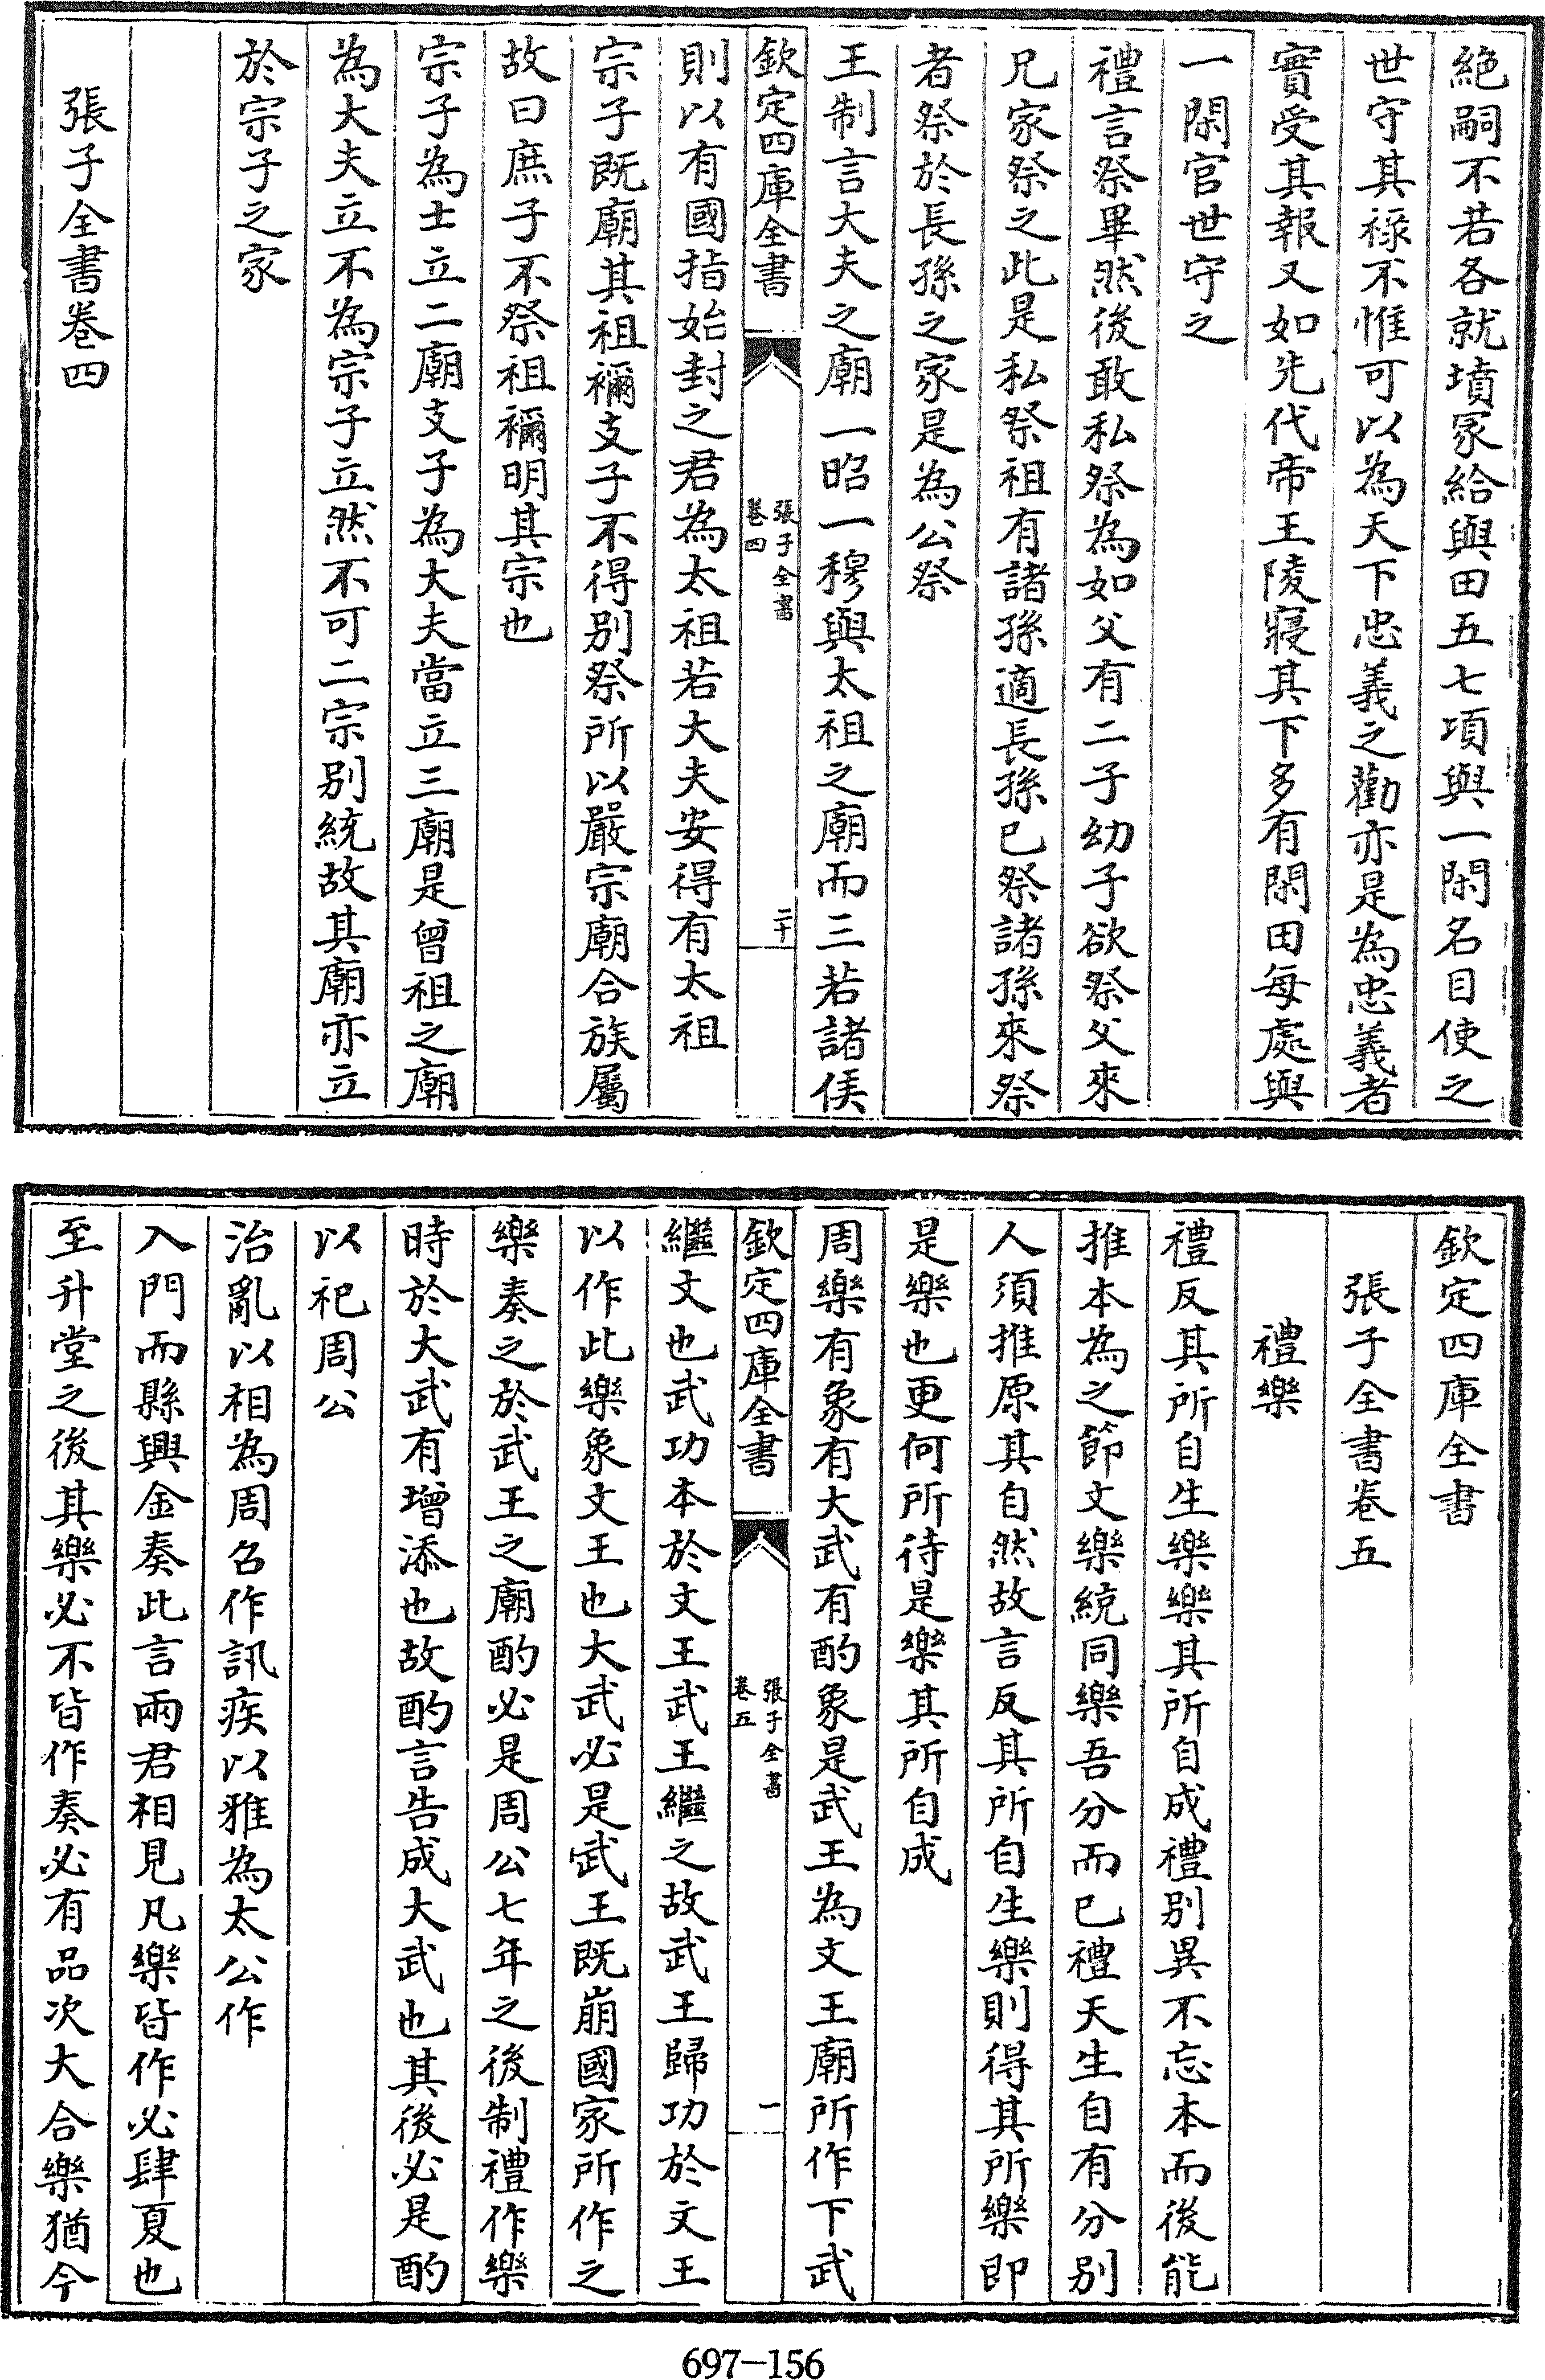 絶嗣不若各就墳冢給與田五七項與一閑名目使之
世守其祿不惟可以為天下忠義之勸亦是為忠義者
實受其報又如先代帝王陵寢其下多有閑田每處與
一閑官世守之
禮言祭畢然後敢私祭為如父有二子幼子欲祭父來
兄家祭之此是私祭祖有諸孫適長孫已祭諸孫來祭
者祭於長孫之家是為公祭
王制言大夫之廟一昭一穆與太祖之廟而三若諸侯
欽定四庫全書
張子全書
卷四
二十
則以有國指始封之君為太祖若大夫安得有太祖
宗子既廟其祖禰支子不得别祭所以嚴宗廟合族屬
故曰庶子不祭祖禰明其宗也
宗子為士立二廟支子為大夫當立三廟是曾祖之廟
為大夫立不為宗子立然不可二宗别統故其廟亦立
於宗子之家
張子全書卷四
欽定四庫全書
張子全書卷五
禮樂
禮反其所自生樂樂其所自成禮别異不忘本而後能
推本為之節文樂統同樂吾分而已禮天生自有分别
人須推原其自然故言反其所自生樂則得其所樂即
是樂也更何所待是樂其所自成
周樂有象有大武有酌象是武王為文王廟所作下武
欽定四庫全書
張子全書
卷五
一
繼文也武功本於文王武王繼之故武王歸功於文王
以作此樂象文王也大武必是武王既崩國家所作之
樂奏之於武王之廟酌必是周公七年之後制禮作樂
時於大武有增添也故酌言告成大武也其後必是酌
以祀周公
治亂以相為周召作訊疾以雅為太公作
入門而縣興金奏此言兩君相見凡樂皆作必肆夏也
至升堂之後其樂必不皆作奏必有品次大合樂猶今
697-156